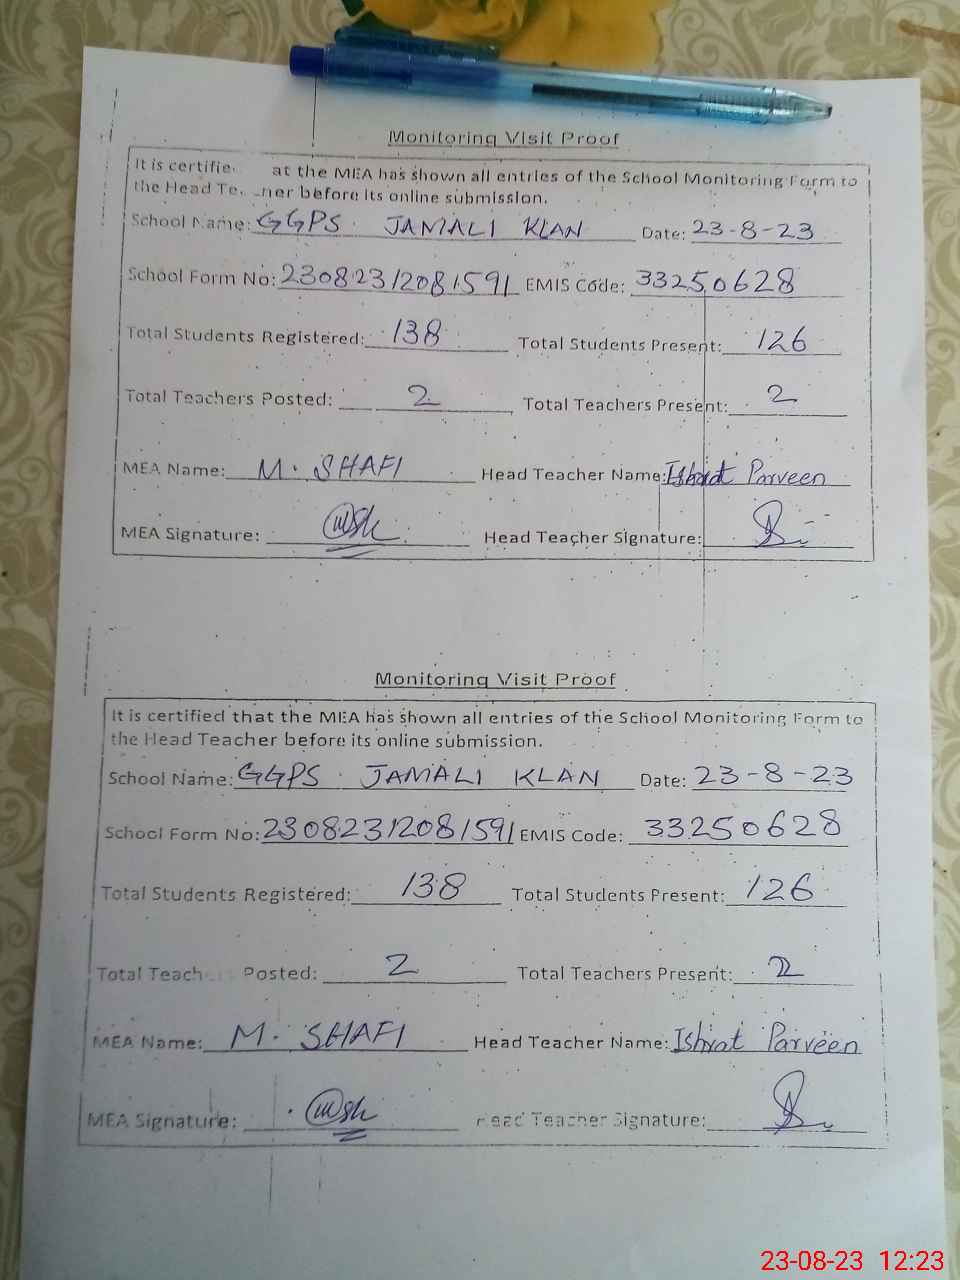 Monitoring Visit Proof
It is certifie at the MEA has shown all entries of the School Monitoring Form to
the Head Te ner before its online submission.
School Name: GGPS JAMALI KLAN Date: 23-8-23
School Form No: 23082312081591 EMIS Code: 33250628
Total Students Registered: 138 Total Students Present: 126
Total Teachers Posted: 2 Total Teachers Present: 2
MEA Name: M. SHAFI Head Teacher Name: Ishrat Parveen
MEA Signature: Head Teacher Signature:
Monitoring Visit Proof
It is certified that the MEA has shown all entries of the School Monitoring Form to
the Head Teacher before its online submission.
School Name: GGPS JAMALI KLAN Date: 23-8-23
School Form No: 23082312081591 EMIS Code: 33250628
Total Students Registered: 138 Total Students Present: 126
Total Teachers Posted: 2 Total Teachers Present: 2
MEA Name: M. SHAFI Head Teacher Name: Ishrat Parveen
MEA Signature: Head Teacher Signature:
23-08-23 12:23